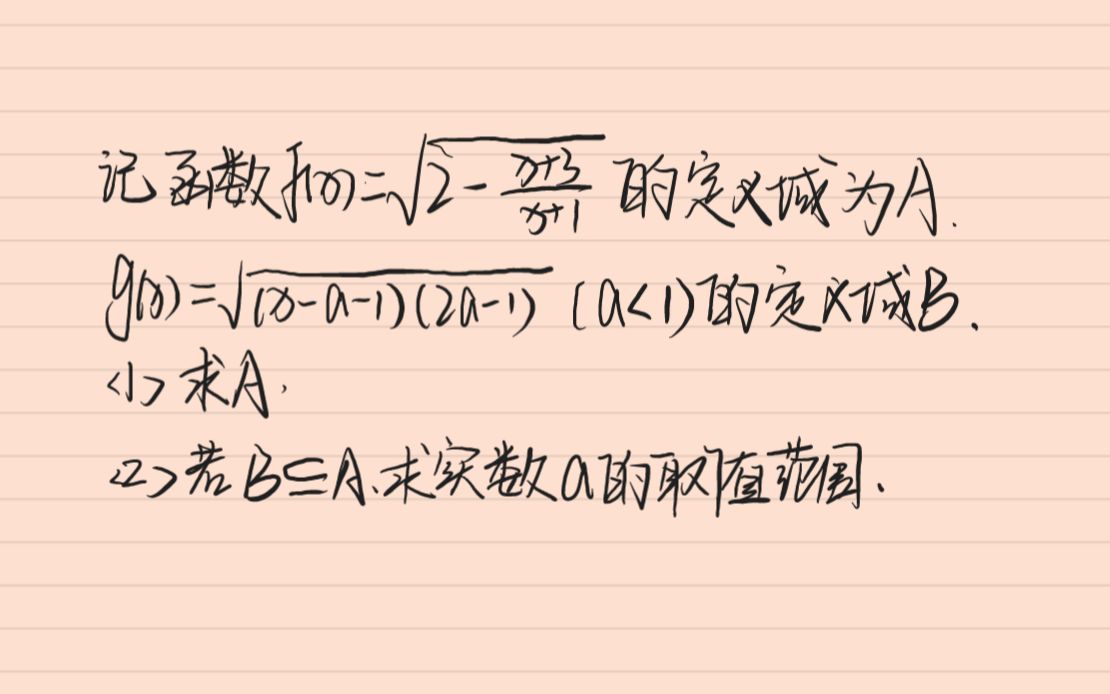 记函数f(x)=√(2-(x+3)/(x+1))的定义域为A.
g(x)=√((x-a-1)(2a-1)) (a<1)的定义域B.
<1>求A.
<2>若B⊆A、求实数a的取值范围.